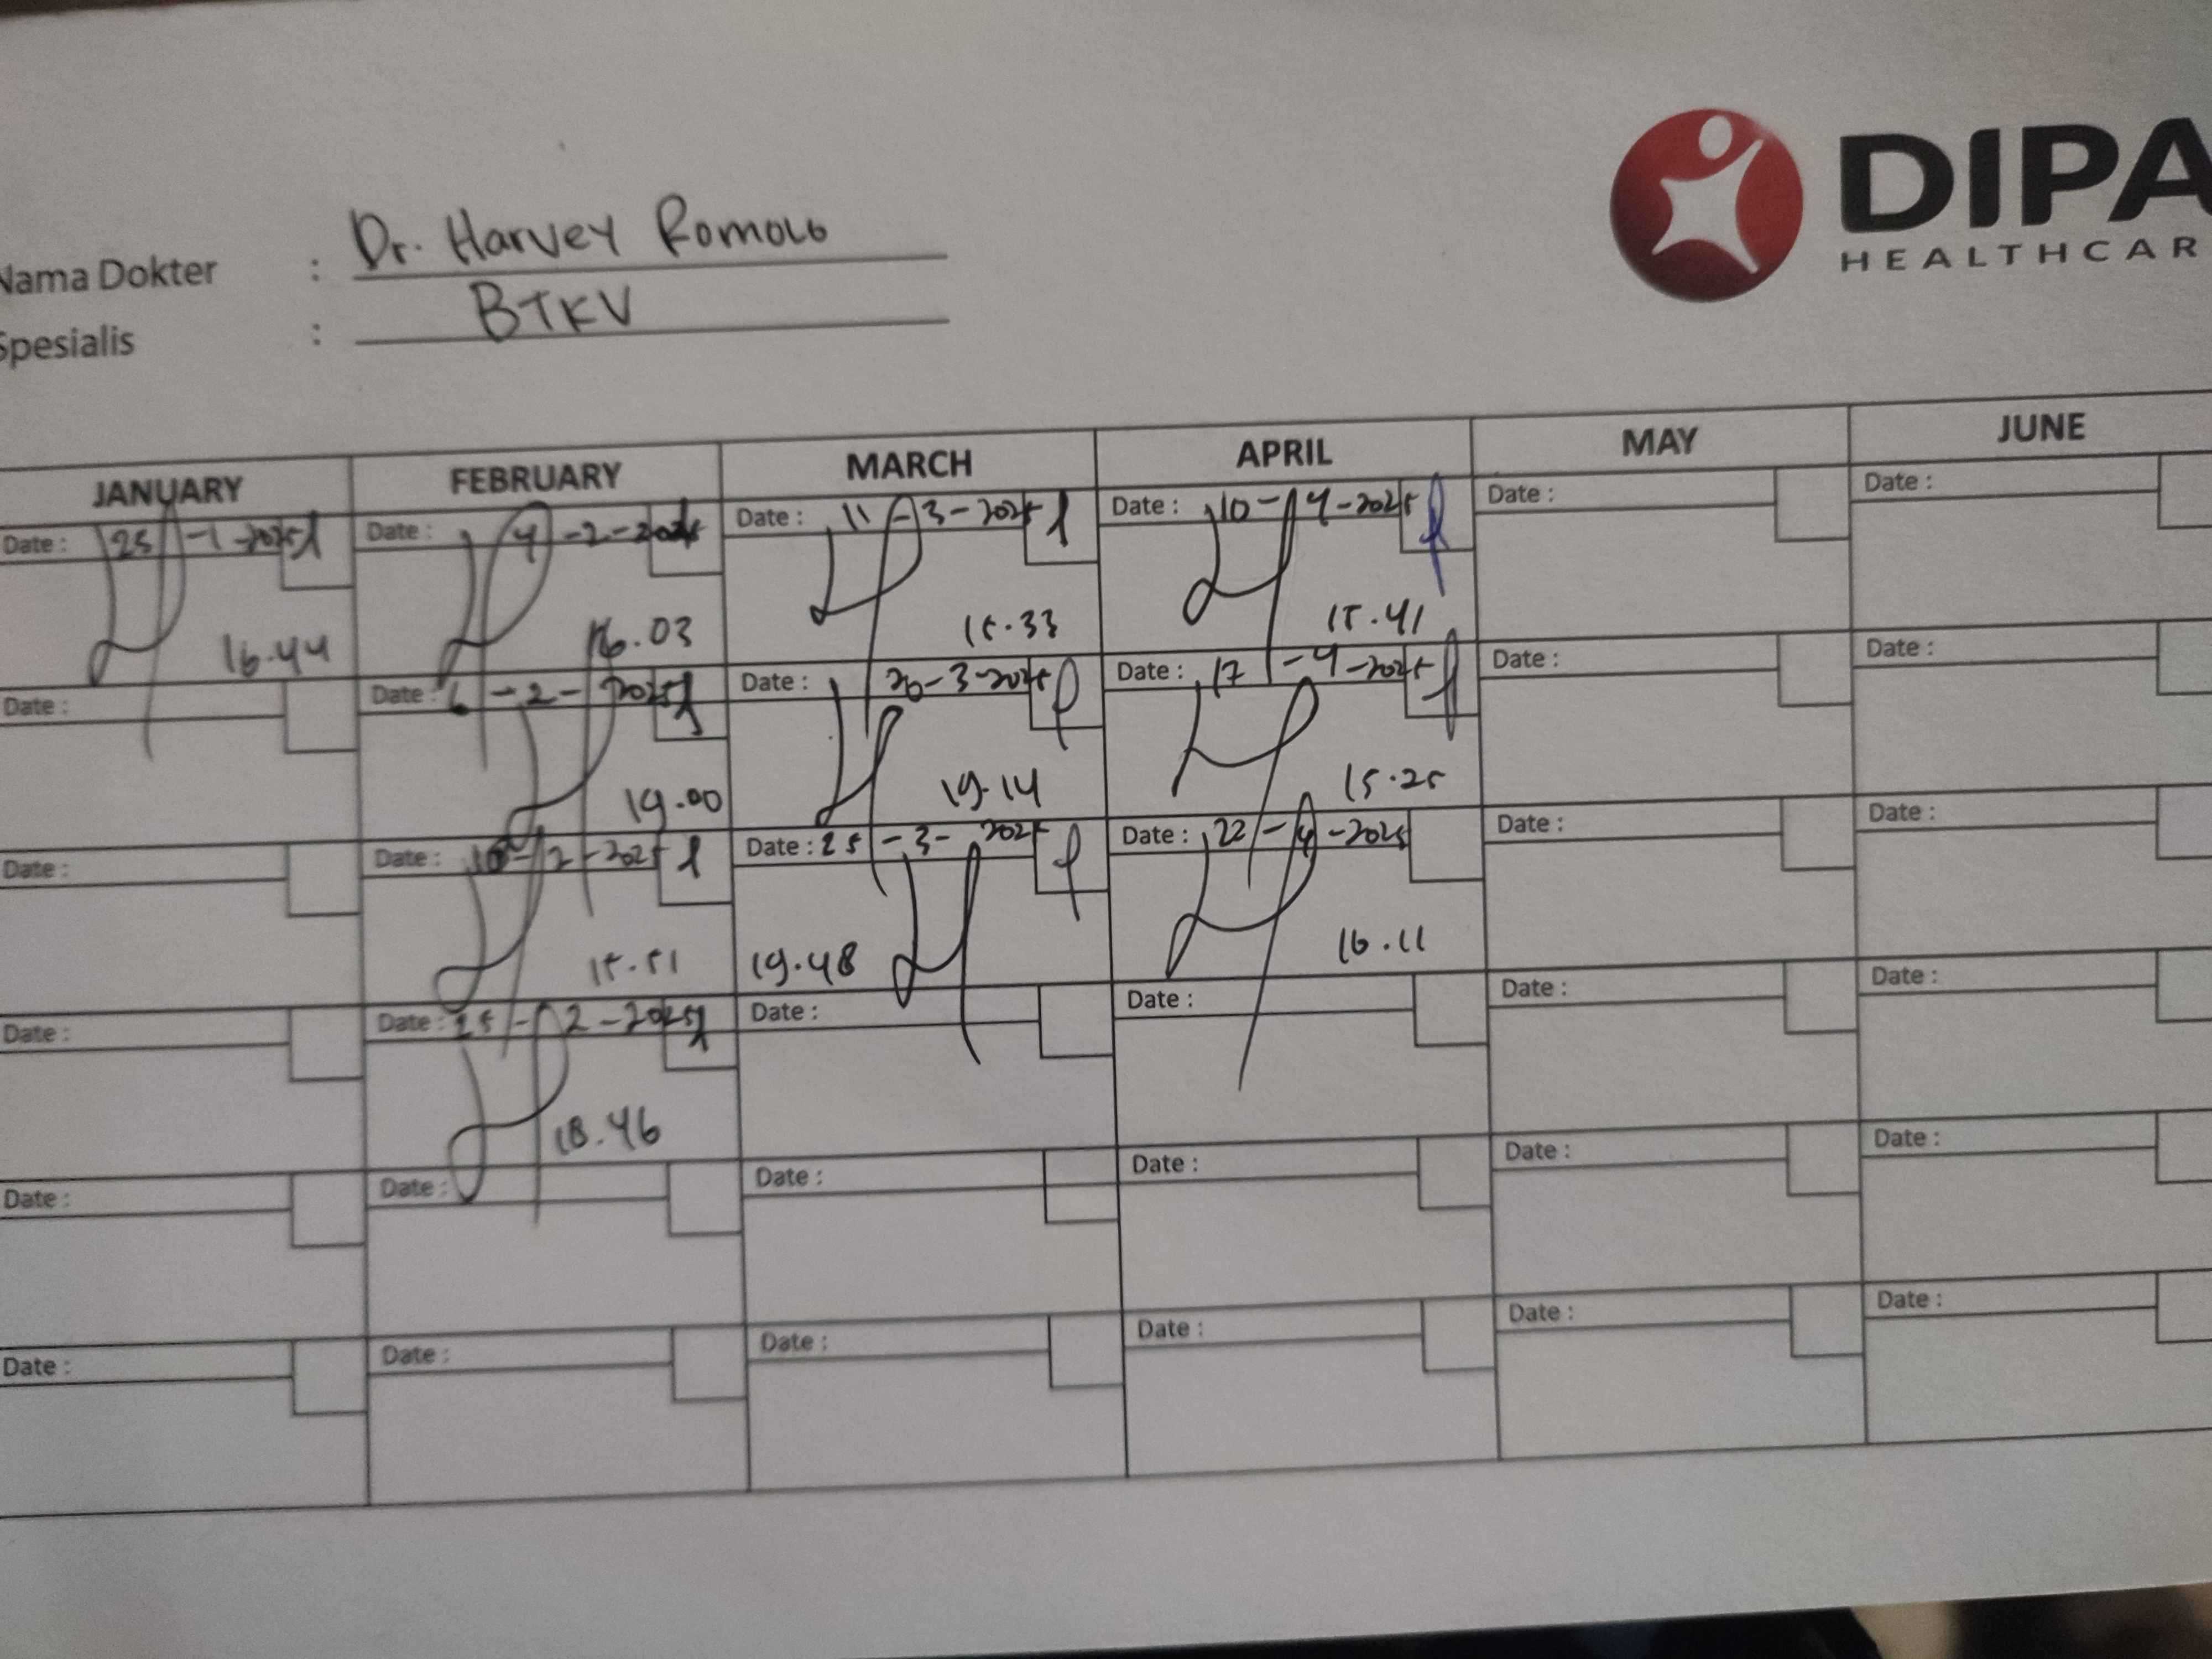 DIPA
HEALTHCAR
Nama Dokter : Dr. Harvey Romolo
Spesialis : BTKV
JANUARY FEBRUARY MARCH APRIL MAY JUNE
Date : 25-1-2025 Date : 4-2-2025 Date : 11-3-2025 Date : 10-4-2025 Date : Date :
16.44 16.03 15.33 15.41
Date : Date : 6-2-2025 Date : 20-3-2025 Date : 17-4-2025 Date : Date :
19.00 19.14 15.25
Date : Date : 10-2-2025 Date : 25-3-2025 Date : 22-4-2025 Date : Date :
15.51 19.48 16.11
Date : Date : 25-2-2025 Date : Date : Date : Date :
18.46
Date : Date : Date : Date : Date : Date :
Date : Date : Date : Date : Date : Date :